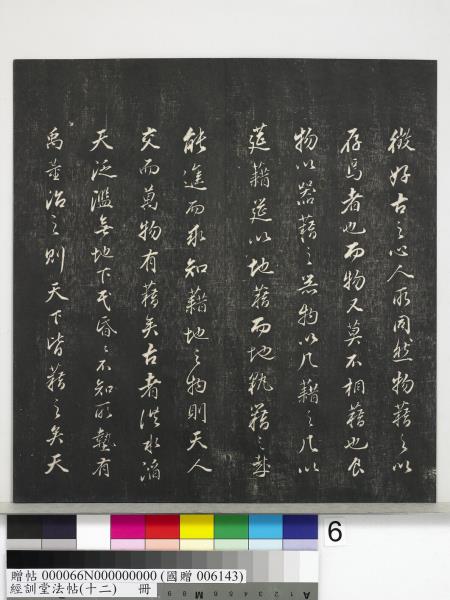 微好古之心人所同然物藉之以
存焉者也而物又莫不相藉也食
物以器藉之器物以几藉之几以
莚藉莚以地藉而地孰藉之哉
能進而求知藉地之物則天人
交而萬物有藉矣古者洪水滔
天泛濫無地下民昏〻不知所墊有
禹董治之則天下皆藉之矣天
6
贈帖 000066N000000000 (國贈 006143)
經訓堂法帖(十二) 冊